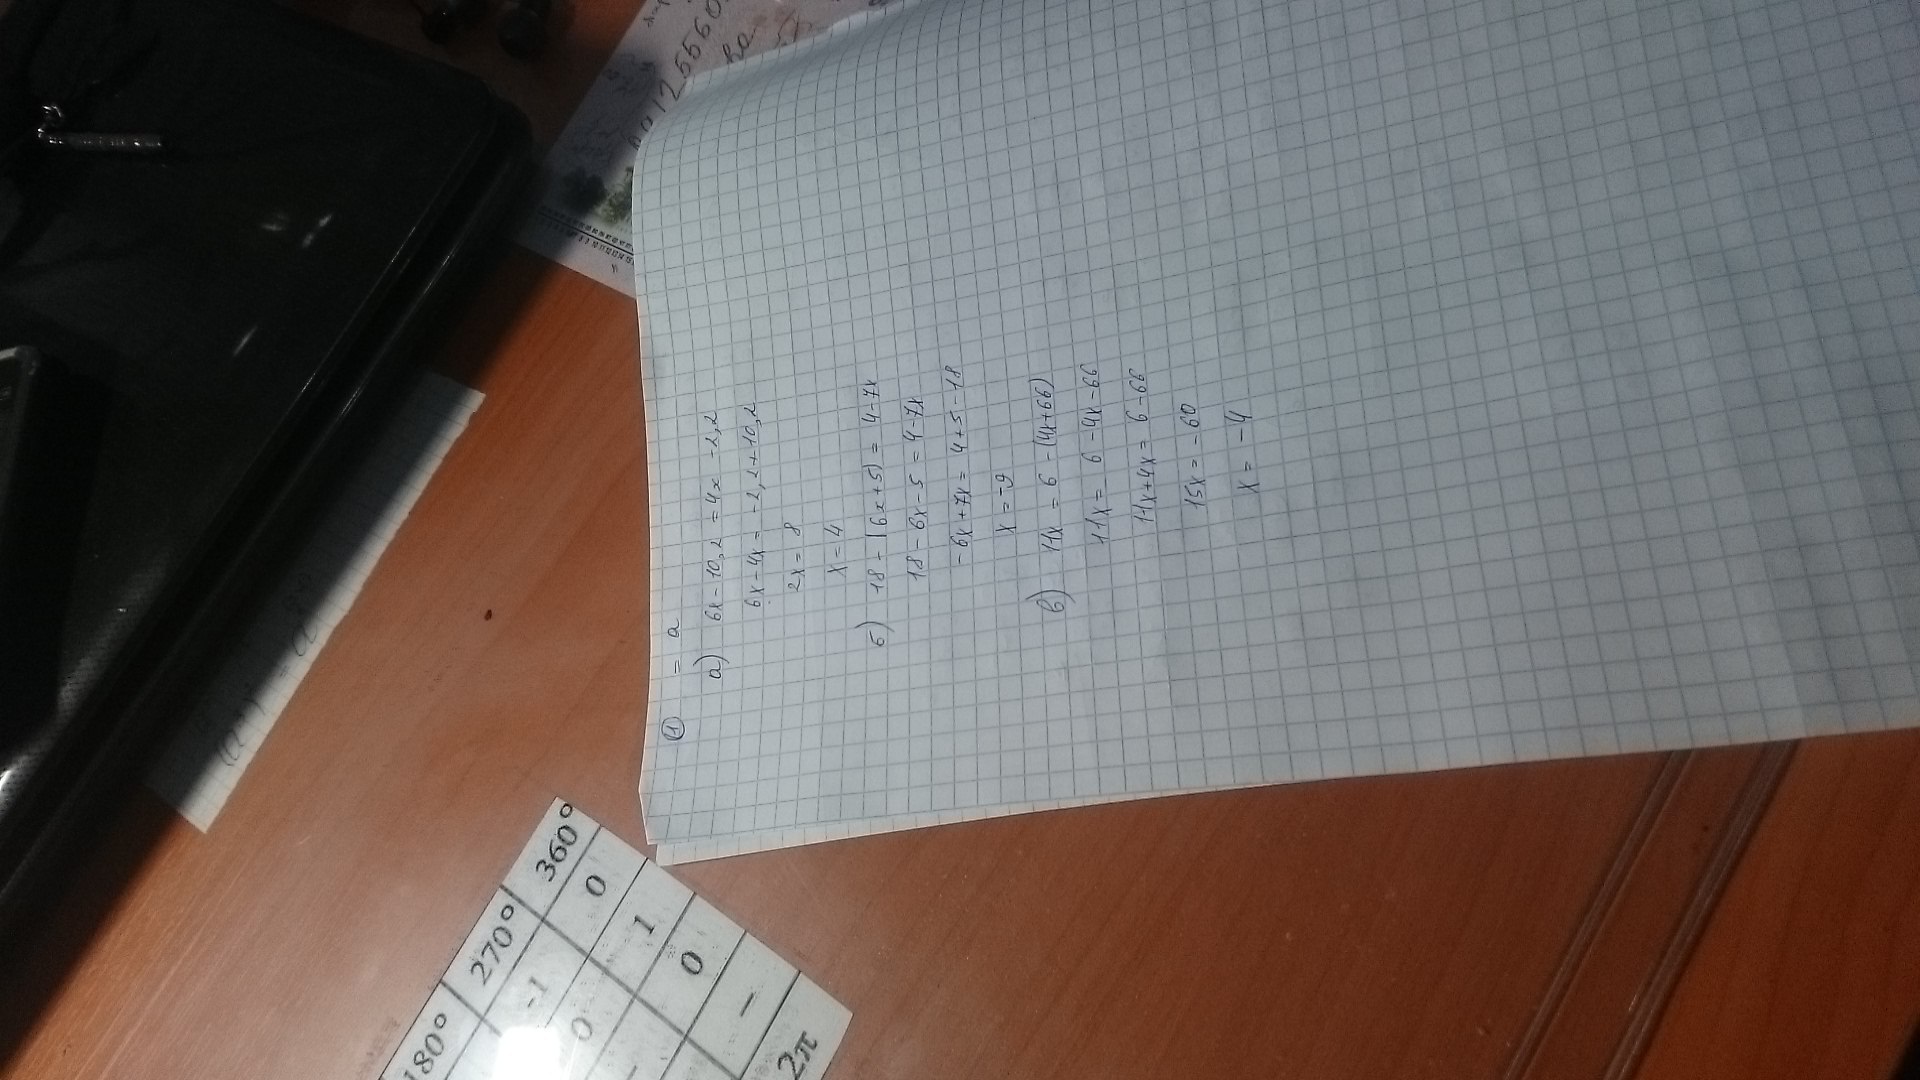 ① = a
а) 6x - 10,2 = 4x - 2,2
6x - 4x = - 2,2 + 10,2
2x = 8
x = 4
б) 18 - (6x + 5) = 4 - 7x
18 - 6x - 5 = 4 - 7x
- 6x + 7x = 4 + 5 - 18
x = - 9
в) 11x = 6 - (4x + 66)
11x = 6 - 4x - 66
11x + 4x = 6 - 66
15x = - 60
x = - 4
180° 270° 360°
-1 0
0 1
0
- -
2π